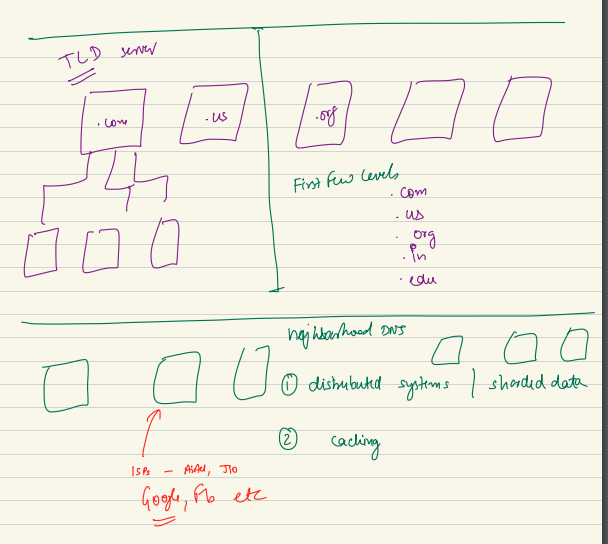 TLD server
.com
.us
.org
First Few Levels
. com
. us
. org
. in
. edu
neighbourhood DNS
① distributed systems | sharded data
② caching
ISPs - Airtel, JIO
Google, Fb etc